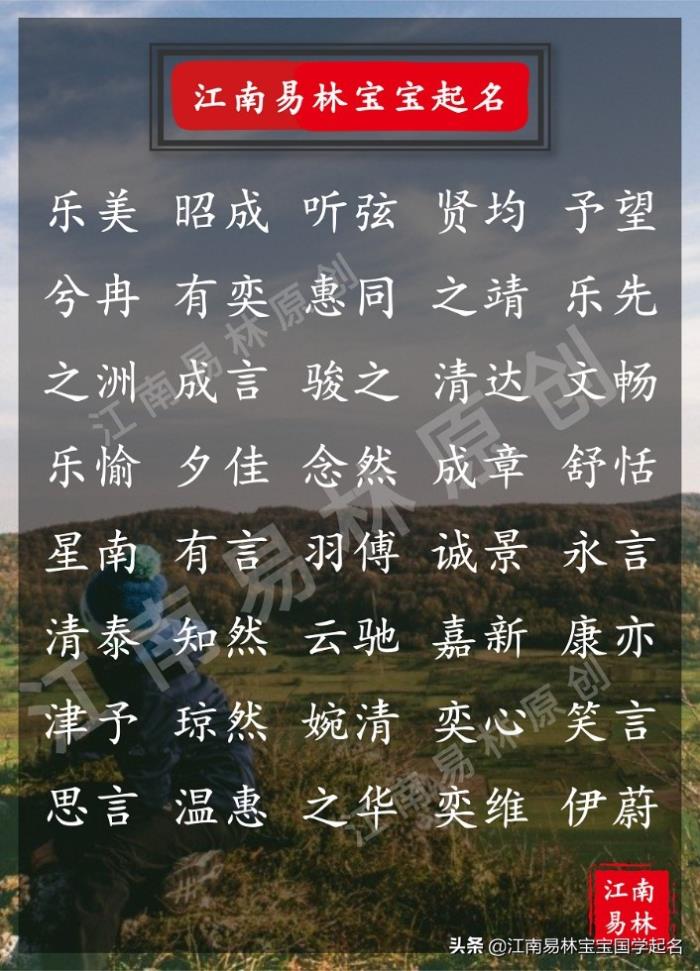 江南易林宝宝起名
乐美 昭成 听弦 贤均 予望
兮冉 有奕 惠同 之靖 乐先
之洲 成言 骏之 清达 文畅
乐愉 夕佳 念然 成章 舒恬
星南 有言 羽傅 诚景 永言
清泰 知然 云驰 嘉新 康亦
津予 琼然 婉清 奕心 笑言
思言 温惠 之华 奕维 伊蔚
江南易林原创
江南易林原创
江南易林原创
江南
易林
头条 @江南易林宝宝国学起名